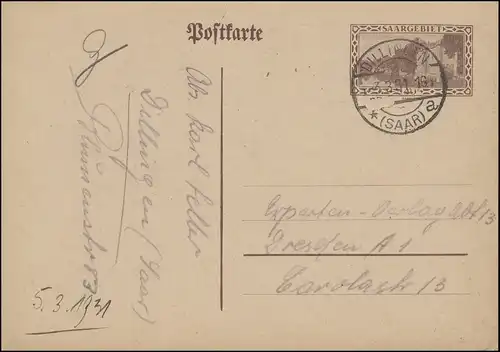 Postkarte
SAARGEBIET
DILLINGEN
(SAAR) a
Abs. Karl
Dillingen (Saar)
5.3.1931
Experten-Verlag Abt 13
Dresden A 1
Carolastr 13